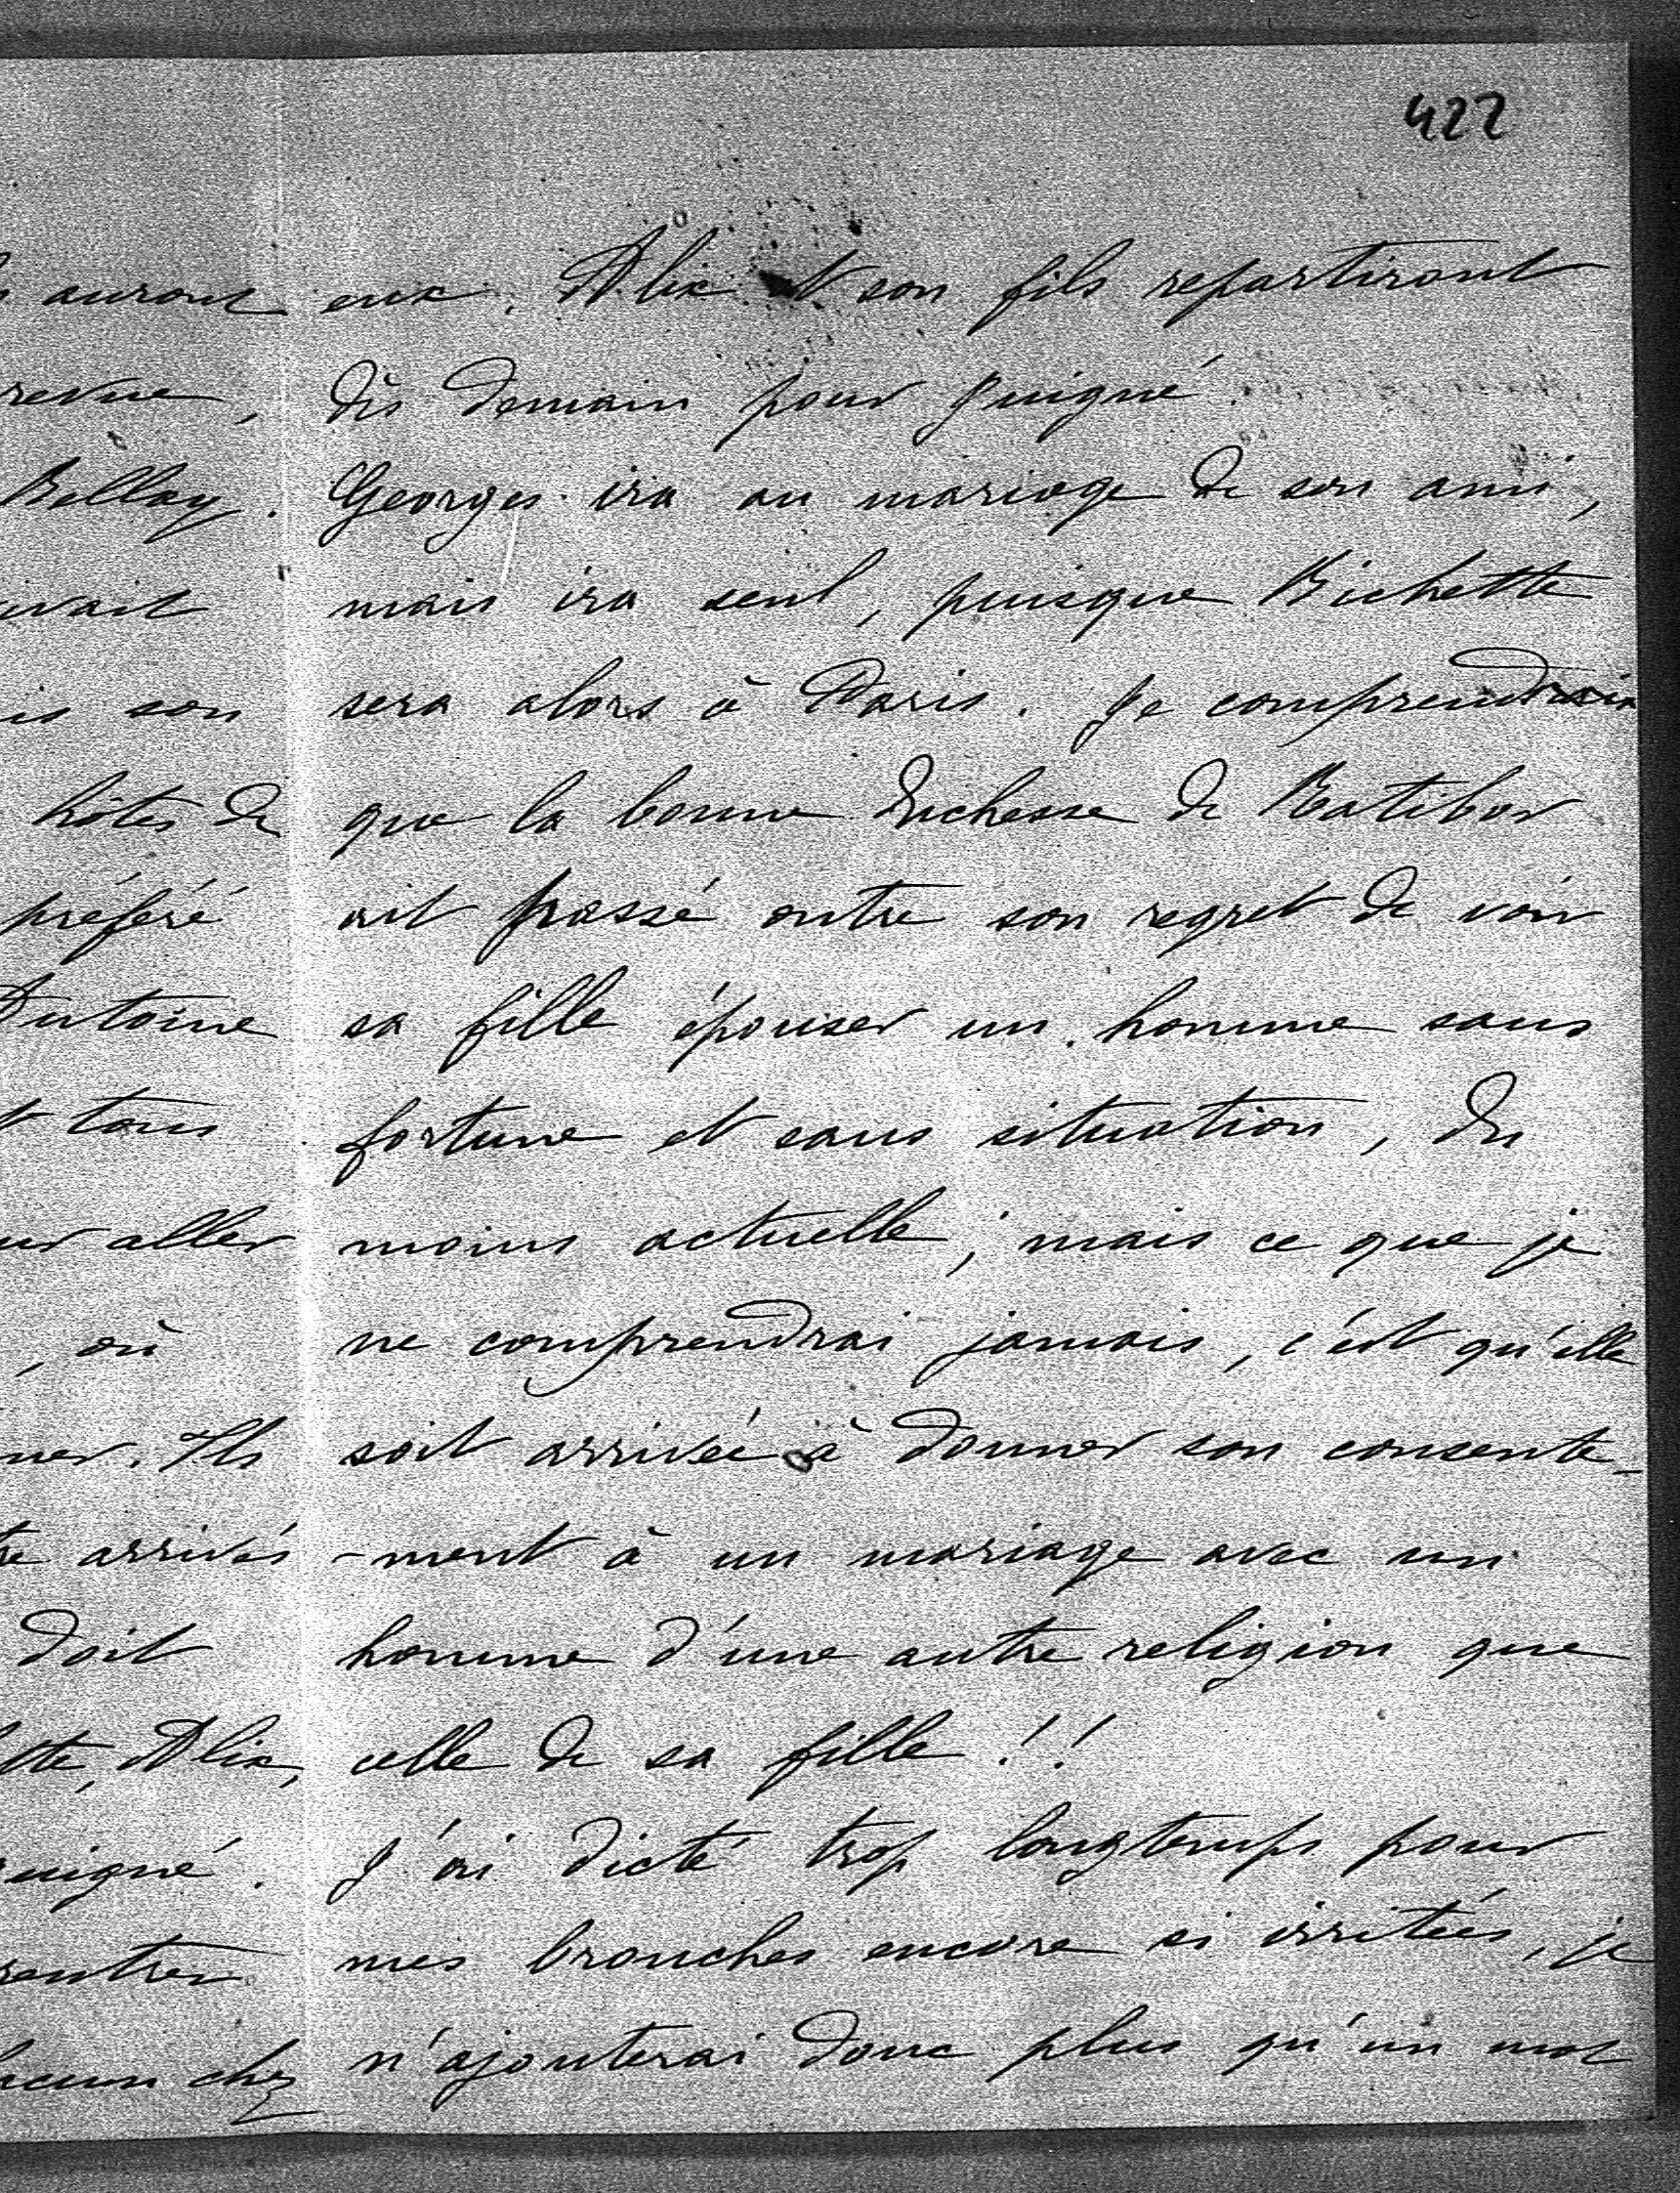 422
s auront
revue,
Bellay.
uvait
is son
hôtes de
préféré
Antoine
t tous
ur aller
, où
ner. Ils
tre arrivés
doit
tte, Alix,
uigné.
rentrer
hacun chez
eux. Alix et son fils repartiront
dès demain pour Juigné.
Georges ira au mariage de son ami,
mais ira seul, puisque Bichette
sera alors à Paris. Je comprendrais
que la bonne Duchesse de Ratibor
ait passé outre son regret de voir
sa fille épouser un homme sans
fortune et sans situation, du
moins actuelle; mais ce que je
ne comprendrai jamais, c'est qu'elle
soit arrivée à donner son consente-
-ment à un mariage avec un
homme d'une autre religion que
celle de sa fille!!
J'ai dicté trop longtemps pour
mes bronches encore si irritées, je
n'ajouterai donc plus qu'un mot